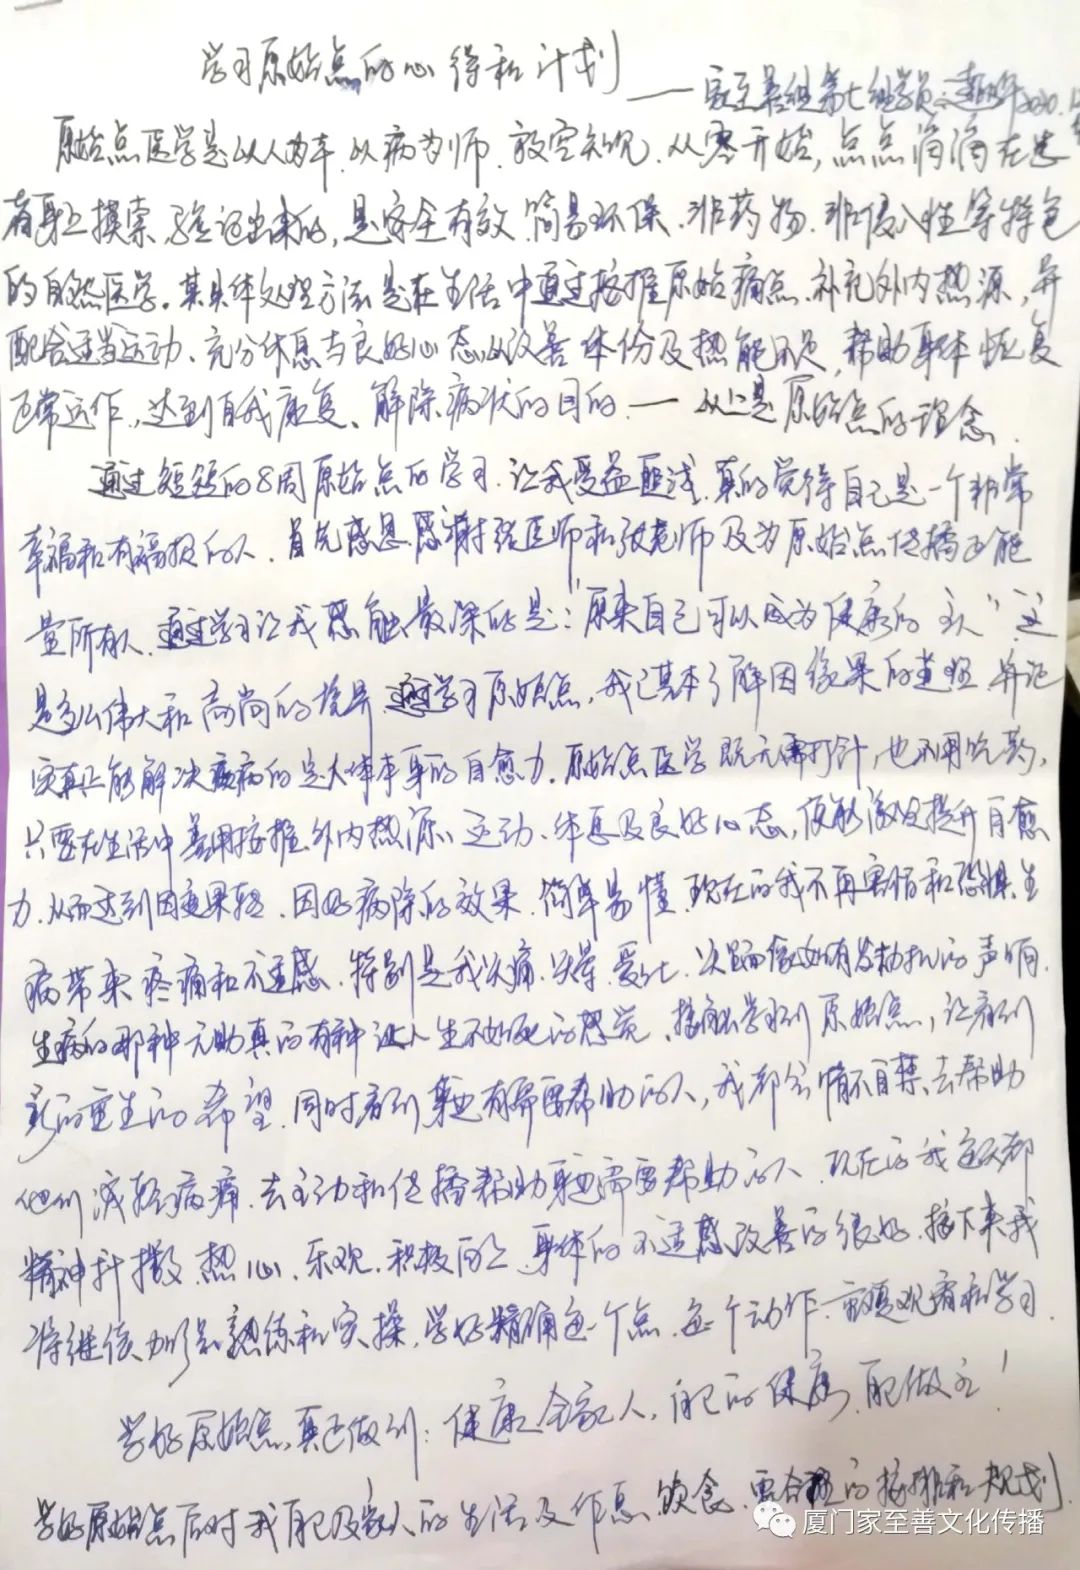 学习原始点的心得和计划
——家至善组第七组学员
原始点医学是以人为本.以病为师.放空知见.从零开始,点点滴滴在患
者身上摸索验证出来的,是安全有效.简易环保.非药物.非侵入性等特色
的自然医学.其具体处理方法是在生活中通过按推原始痛点、补充外内热源,并
配合适当运动、充分休息与良好心态从改善体伤及热能不足,帮助身体恢复
正常运作,达到自我康复、解除病状的目的.—以上是原始点的理念.
通过短短的8周原始点的学习.让我受益匪浅.真的觉得自己是一个非常
幸福和有福报的人.首先感恩感谢张医师和张老师及为原始点传播正能
量所有人.通过学习让我感触最深的是:"原来自己可以成为健康的主人"这
是多么伟大和高尚的境界.通过学习原始点,我已基本了解因缘果的道理.并证
实真正能解决疾病的是人体本身的自愈力.原始点医学既无需打针,也不用吃药,
只要在生活中善用按推.外内热源、运动、休息及良好心态,便能激发提升自愈
力.从而达到因变果轻.因好病除的效果.简单易懂.现在的我不再害怕和恐惧.生
病带来疼痛和不适感.特别是我头痛.头晕.
生病的那种无助真的有种让人生不如死的感觉.接触学习到原始点,让看到
新的重生的希望.同时看到身边有需要帮助的人,我都会情不自禁.去帮助
他们减轻病痛.去主动和传播帮助身边需要帮助的人.现在的我每天都
精神抖擞.热心.乐观.积极向上.身体的不适感改善的很好.接下来我
将继续加强熟练和实操,学好精确每一个点.每个动作.重复观看和学习.
学好原始点,真正做到:健康全家人,自己的健康,自己做主!
学好原始点后对我自己及家人的生活及作息、饮食.更合理的安排和规划.
厦门家至善文化传播